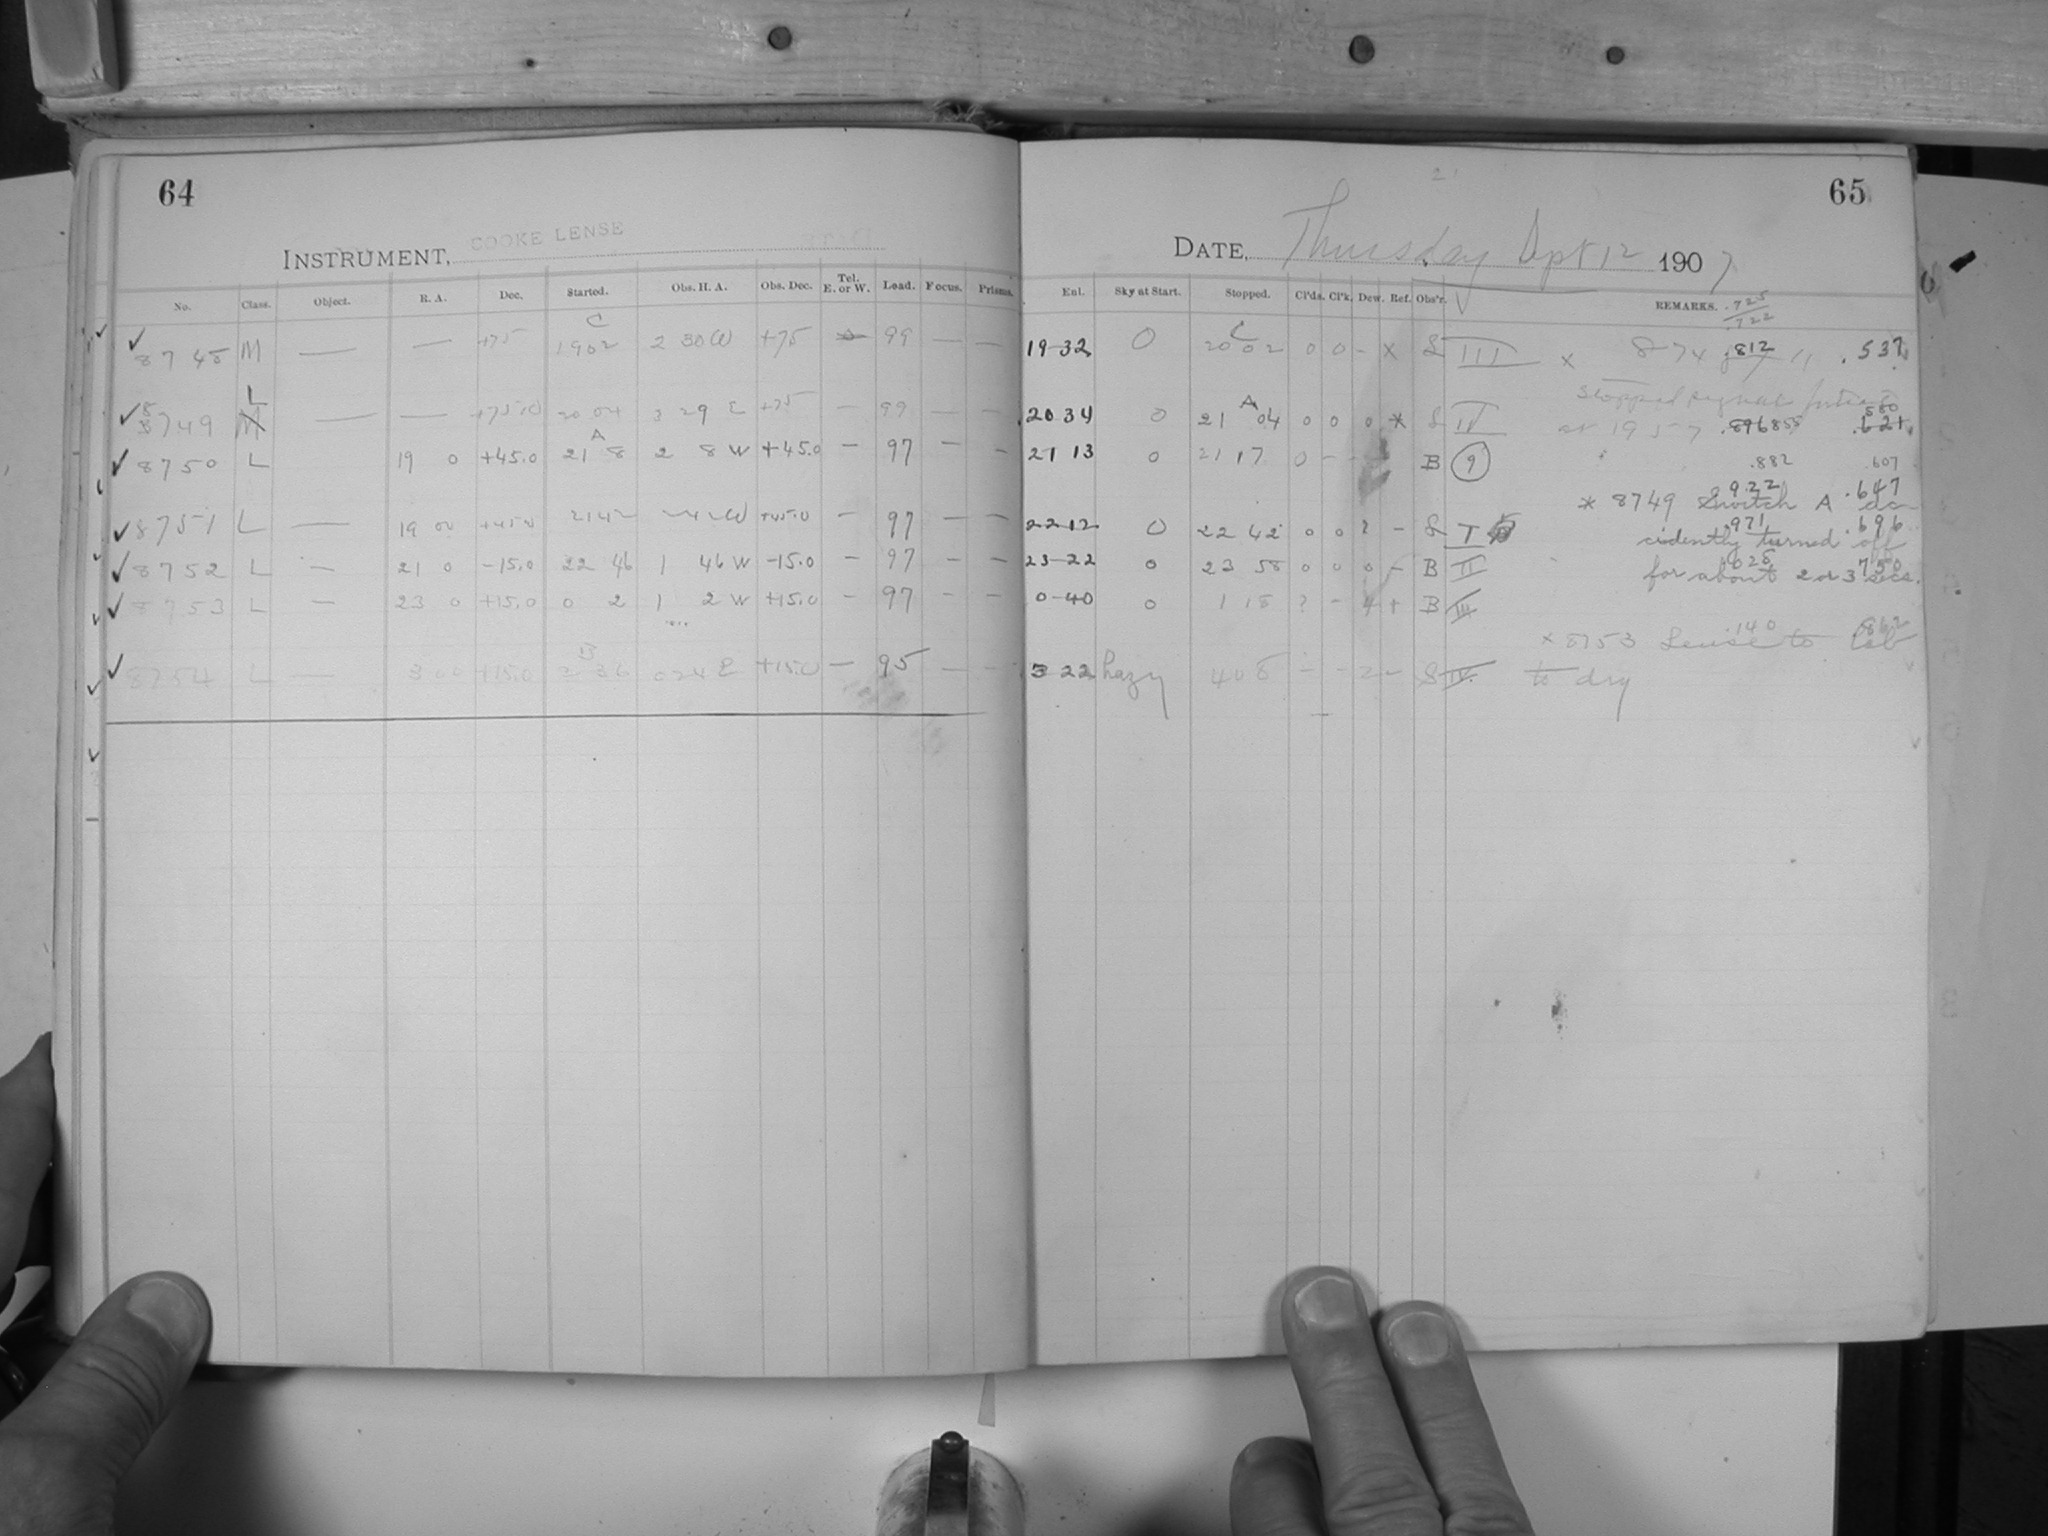 64
INSTRUMENT, COOKE LENSE
No. Class. Object. R. A. Dec. Started. Obs. H. A. Obs. Dec. Tel. E. or W. Load. Focus. Prisms.
8748 M — — +75 C 1902 2 30 W +75 99 — —
8749 L — — +75.0 20 04 3 29 E +75 — 99
8750 L 19 0 +45.0 A 21 8 2 8 W +45.0 — 97 —
8751 L — 19 00 +45.0 2142 W +45.0 — 97 — —
8752 L — 21 0 -15.0 22 46 1 46 W -15.0 — 97 — —
8753 L — 23 0 +15.0 0 2 1 2 W +15.0 — 97 — —
8754 L — 3 00 +15.0 B 2 36 0 24 E +15.0 — 95 — —
65
DATE, Thursday Sept 12 1907
Ent. Sky at Start. Stopped. Cl'ds. Cl'k. Dew. Ref. Obs'r. REMARKS. .725 .722
19-32 0 C 20 02 0 0 - X S III X 874 .812 .537
Stopped
20 34 0 A 21 04 0 0 0 * S IV at 1957 .580
21 13 0 21 17 0 - B 9 .882 .607
* 8749 Switch A ac- .922 .647
22 12 0 22 42 0 0 ? - S I cidently turned off .971 .696
23-22 0 23 58 0 0 0 - B II for about 2 or 3 secs. .750
0-40 0 1 18 ? - + B III
x 8753 Lense to .140 .862
3 22 hazy 4 08 - - 2 - S IV. to dry